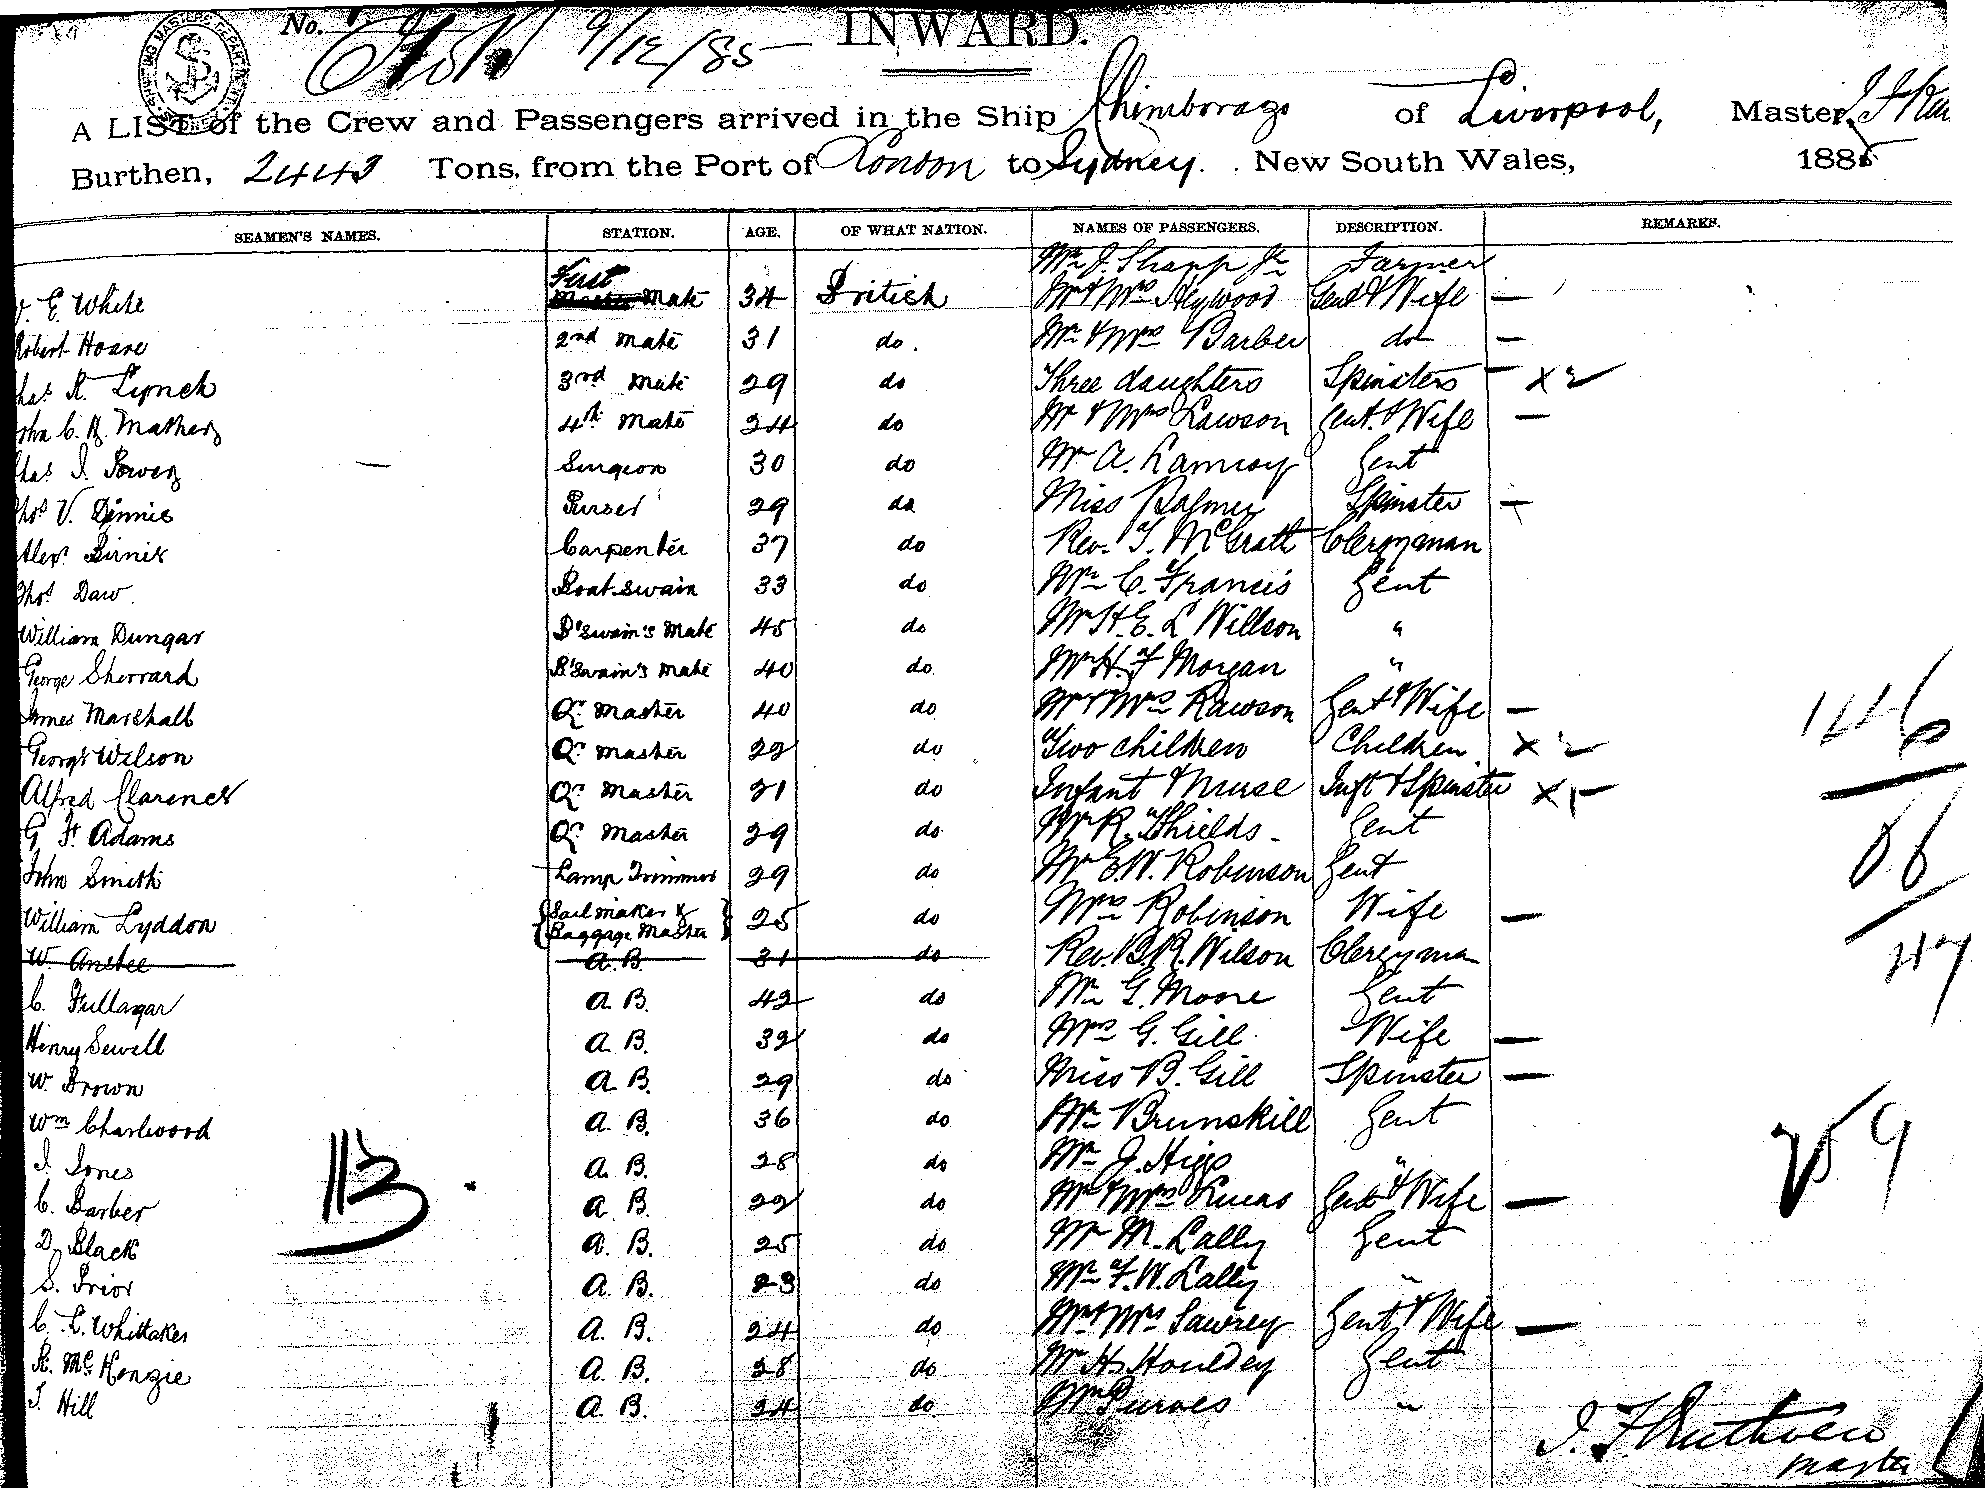 No. 9/12/85 INWARD.
A LIST of the Crew and Passengers arrived in the Ship Chimborazo of Liverpool, Master,
Burthen, 2443 Tons, from the Port of London to Sydney. New South Wales, 1885
SEAMEN'S NAMES. STATION. AGE. OF WHAT NATION. NAMES OF PASSENGERS. DESCRIPTION. REMARKS.
Mr J. Sharp Jr Farmer
E White First Mate 34 British Mr & Mrs Heywood Gent & Wife —
Robert Hoare 2nd Mate 31 do. Mr & Mrs Barber do —
has R. Lynch 3rd Mate 29 do Three daughters Spinsters — x 2
ohn C. B. Mathers 4th Mate 24 do Mr & Mrs Lawson Gent. & Wife —
has J. Power — Surgeon 30 do Mr A. Ramsay Gent
hos V. Dennis Purser 29 do Miss Palmer Spinster —
Alexr Birnie Carpenter 37 do Rev. T. McGrath Clergyman
Thos Daw. Boat Swain 33 do Mr C. Francis Gent
William Dungar B'Swain's Mate 45 do Mr H. E. L Willson "
George Sherrard B'Swain's Mate 40 do Mr H. F Morgan "
James Marshall Qr Master 40 do Mr & Mrs Rawson Gent & Wife — 146
George Wilson Qr Master 22 do Two children Children x 2
Alfred Clarence Qr Master 21 do Infant & Nurse Inft & Spinster x 1
G. H. Adams Qr Master 29 do Mr R. Shields Gent
John Smith Lamp Trimmer 29 do Mr E. W. Robinson Gent
William Lyddon Sail maker & Baggage Master 25 do Mrs Robinson Wife —
W. Anstee A. B. 31 do Rev. B. R. Wilson Clergyman 47
C. Fullagar A. B. 42 do Mr G. Moore Gent
Henry Sewell A. B. 32 do Mrs G. Gill Wife —
W. Brown A. B. 29 do Miss B. Gill Spinster —
Wm Charlwood A. B. 36 do Mr Brunskill Gent 259
J. Jones 113 A. B. 28 do Mr J. Higgs "
C. Barber A. B. 22 do Mr & Mrs Lucas Gent & Wife —
D. Black A. B. 25 do Mr M. Lally Gent
S. Prior A. B. 23 do Mr F. W. Lally "
C. C. Whittaker A. B. 24 do Mr & Mrs Sawrey Gent & Wife —
R. McKenzie A. B. 28 do Mr H. Houldey Gent
T. Hill A. B. 24 do Mr Purves "
J. F Ruthven
Master